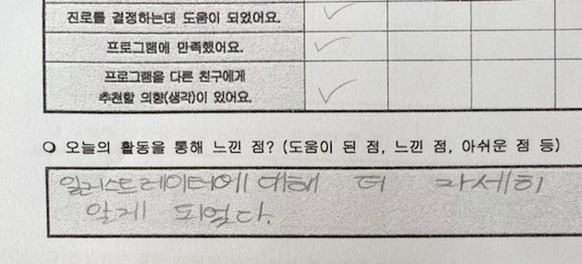 진로를 결정하는데 도움이 되었어요.
프로그램에 만족했어요.
프로그램을 다른 친구에게
추천할 의향(생각)이 있어요.
오늘의 활동을 통해 느낀 점? (도움이 된 점, 느낀 점, 아쉬운 점 등)
일러스트레이터에 대해 더 자세히
알게 되었다.